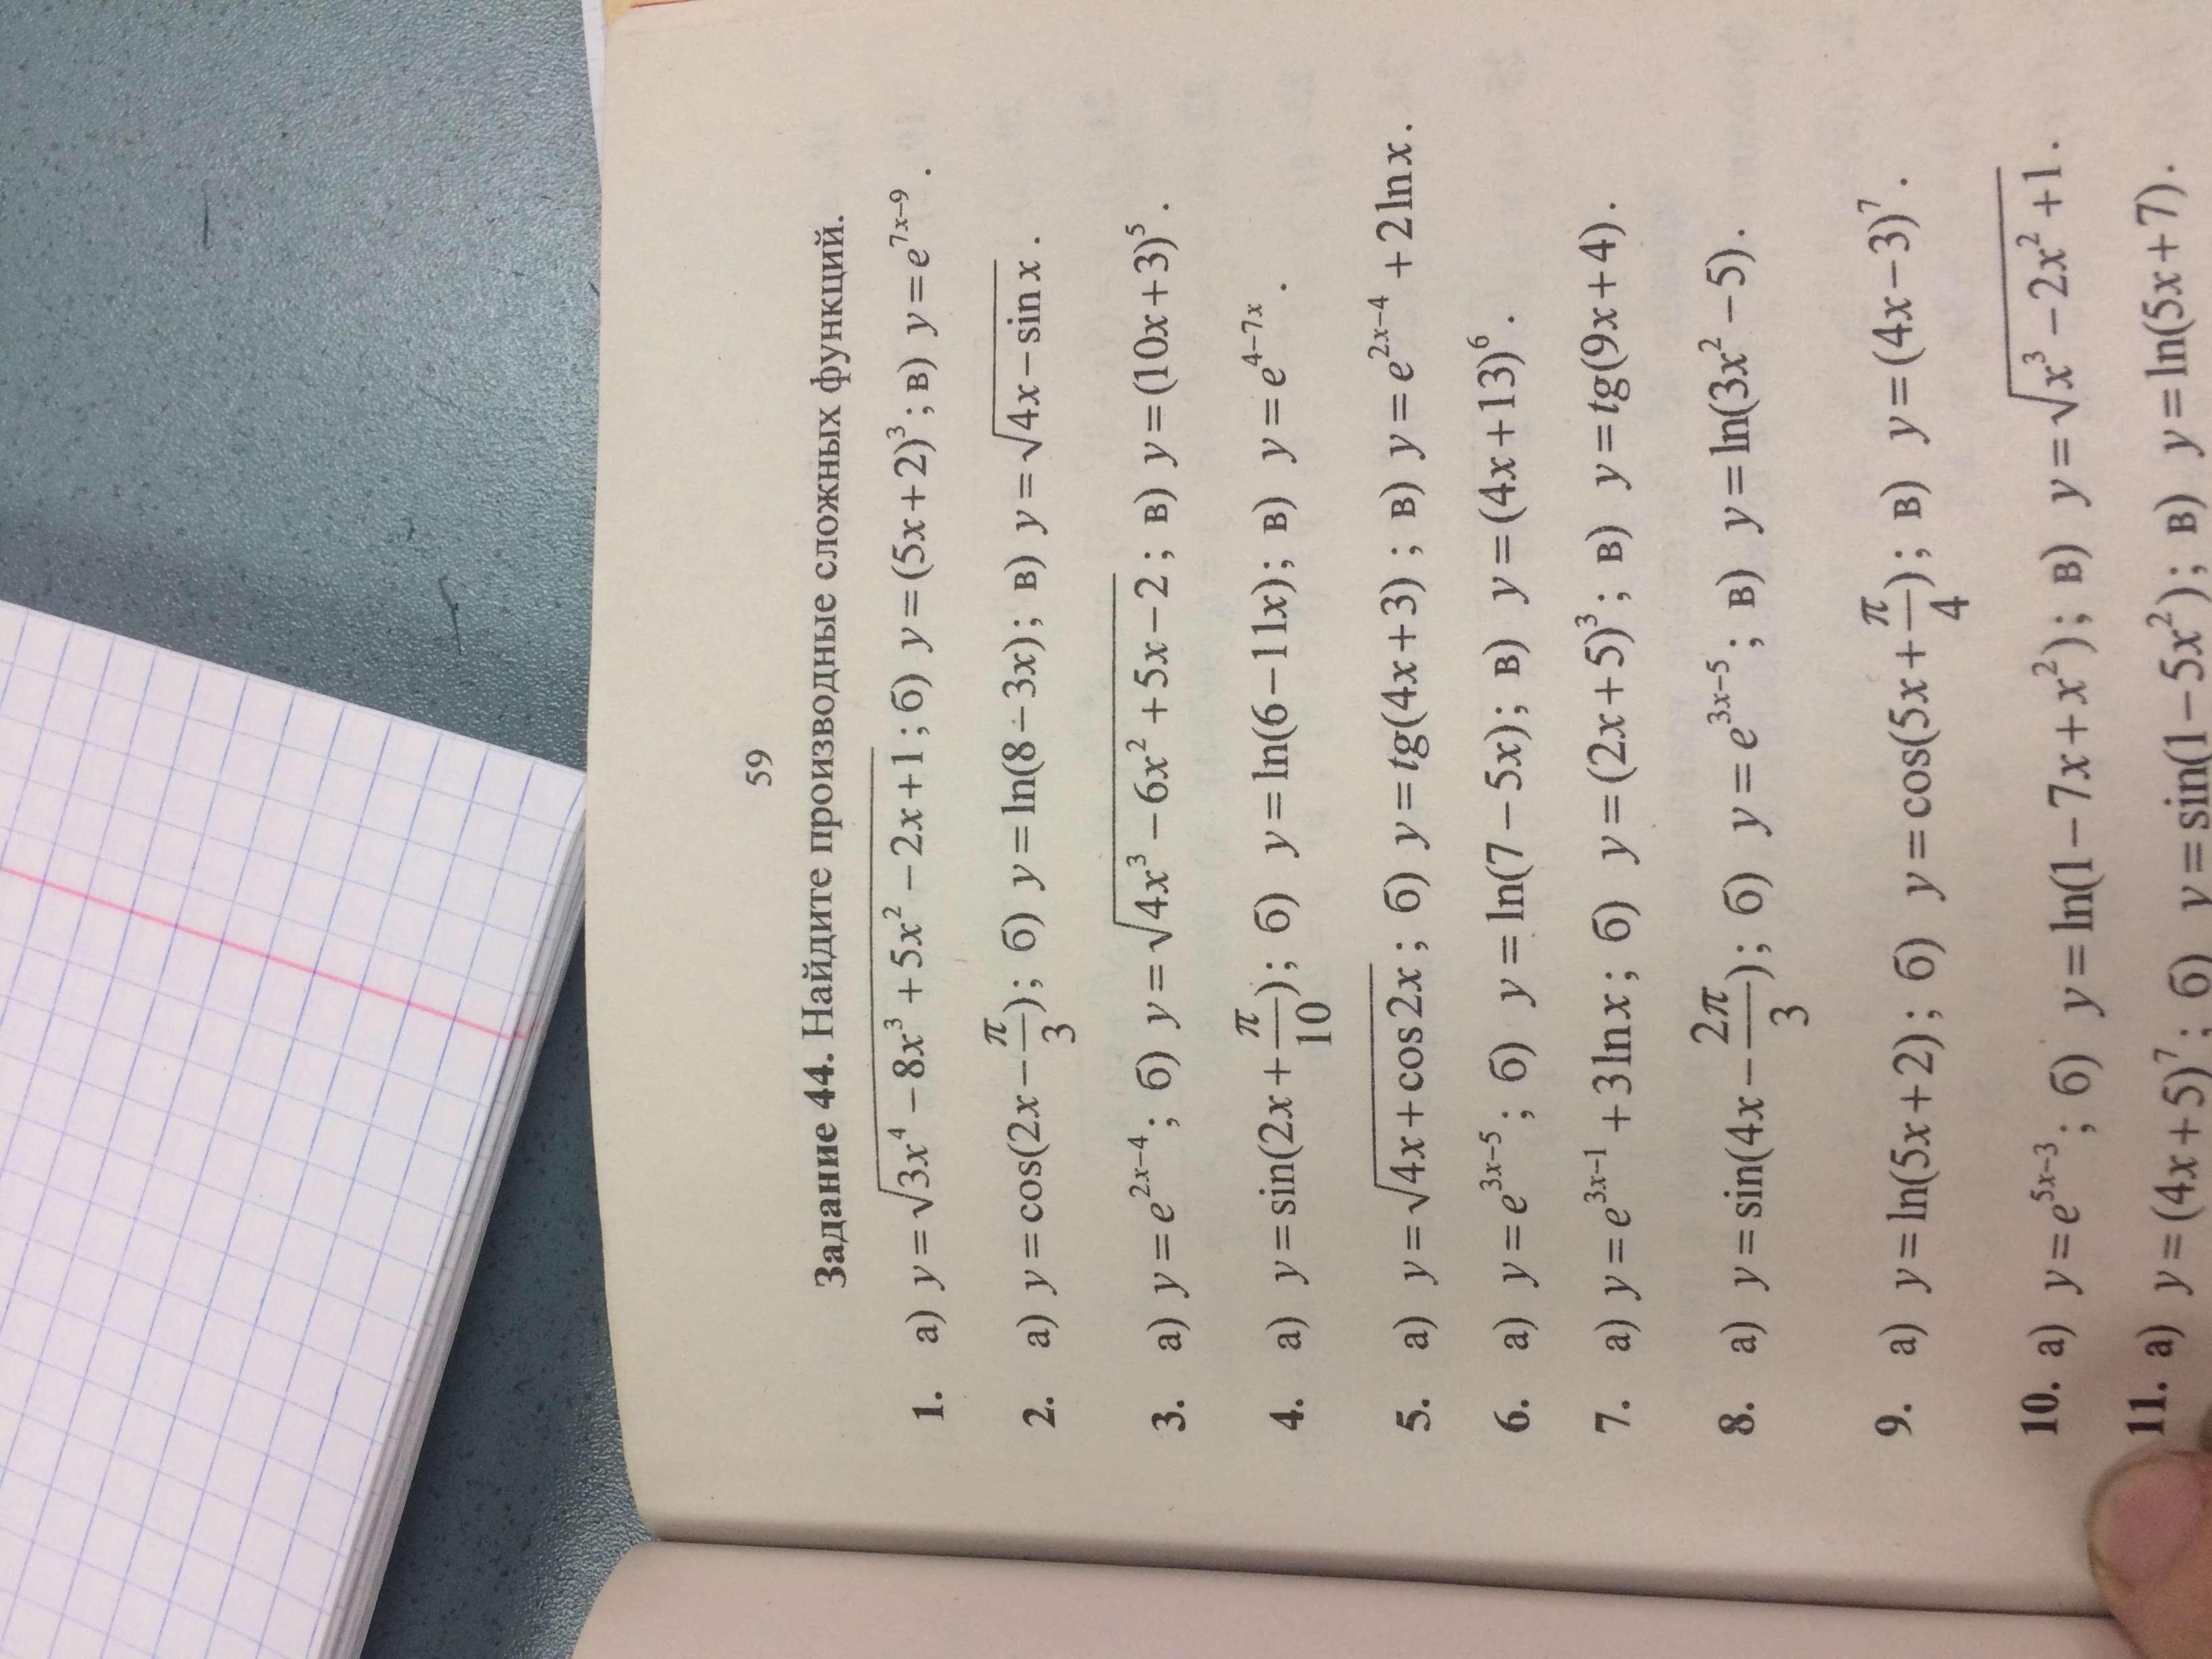 59
Задание 44. Найдите производные сложных функций.
1. а) y=√(3x⁴−8x³+5x²−2x+1); б) y=(5x+2)³; в) y=e^(7x−9).
2. а) y=cos(2x−π/3); б) y=ln(8−3x); в) y=√(4x−sin x).
3. а) y=e^(2x−4); б) y=√(4x³−6x²+5x−2); в) y=(10x+3)⁵.
4. а) y=sin(2x+π/10); б) y=ln(6−11x); в) y=e^(4−7x).
5. а) y=√(4x+cos2x); б) y=tg(4x+3); в) y=e^(2x−4)+2ln x.
6. а) y=e^(3x−5); б) y=ln(7−5x); в) y=(4x+13)⁶.
7. а) y=e^(3x−1)+3lnx; б) y=(2x+5)³; в) y=tg(9x+4).
8. а) y=sin(4x−2π/3); б) y=e^(3x−5); в) y=ln(3x²−5).
9. а) y=ln(5x+2); б) y=cos(5x+π/4); в) y=(4x−3)⁷.
10. а) y=e^(5x−3); б) y=ln(1−7x+x²); в) y=√(x³−2x²+1).
11. а) y=(4x+5)⁷; б) y=sin(1−5x²); в) y=ln(5x+7).